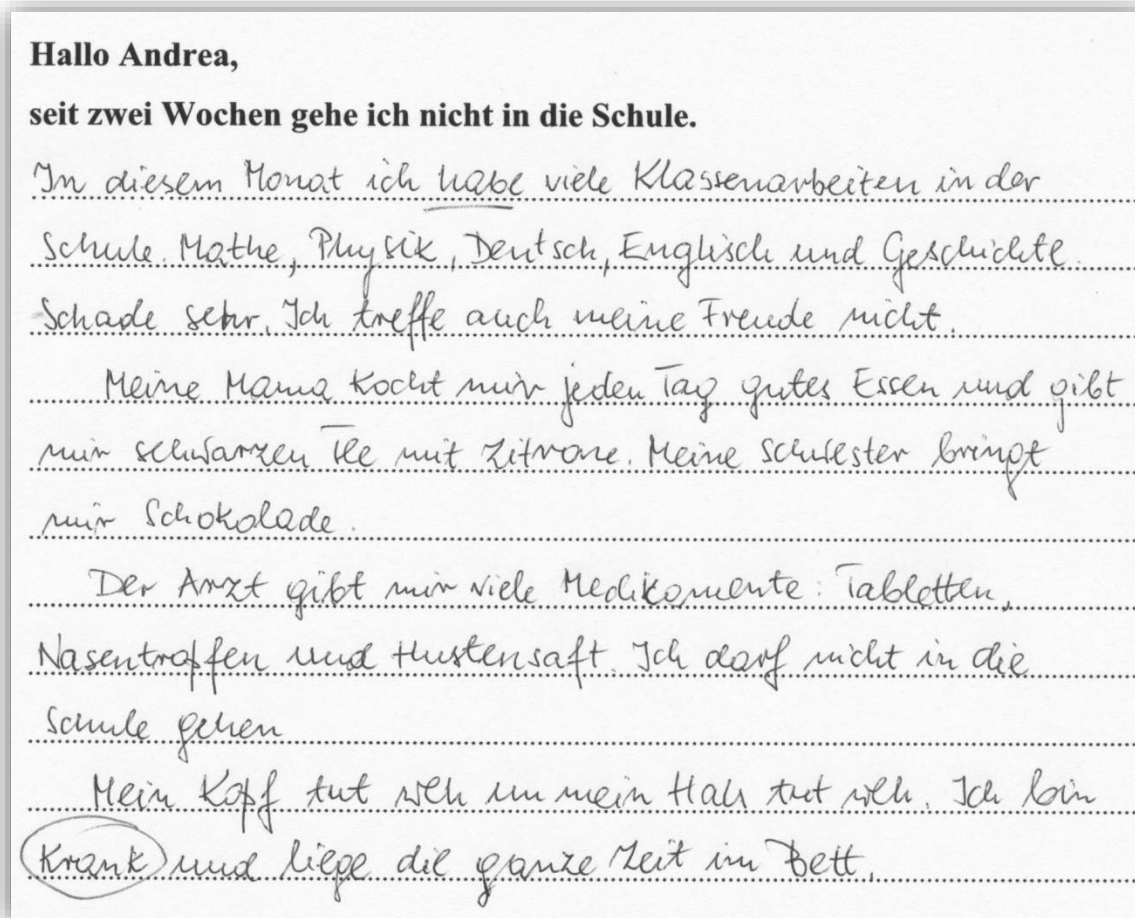 Hallo Andrea,
seit zwei Wochen gehe ich nicht in die Schule.
In diesem Monat ich habe viele Klassenarbeiten in der
Schule. Mathe, Physik, Deutsch, Englisch und Geschichte.
Schade sehr. Ich treffe auch meine Freude nicht.
Meine Mama kocht mir jeden Tag gutes Essen und gibt
mir schwarzen Tee mit Zitrone. Meine Schwester bringt
mir Schokolade.
Der Arzt gibt mir viele Medikomente: Tabletten,
Nasentropfen und Hustensaft. Ich darf nicht in die
Schule gehen
Mein Kopf tut weh un mein Hals tut weh. Ich bin
Krank und liege die ganze Zeit im Bett.